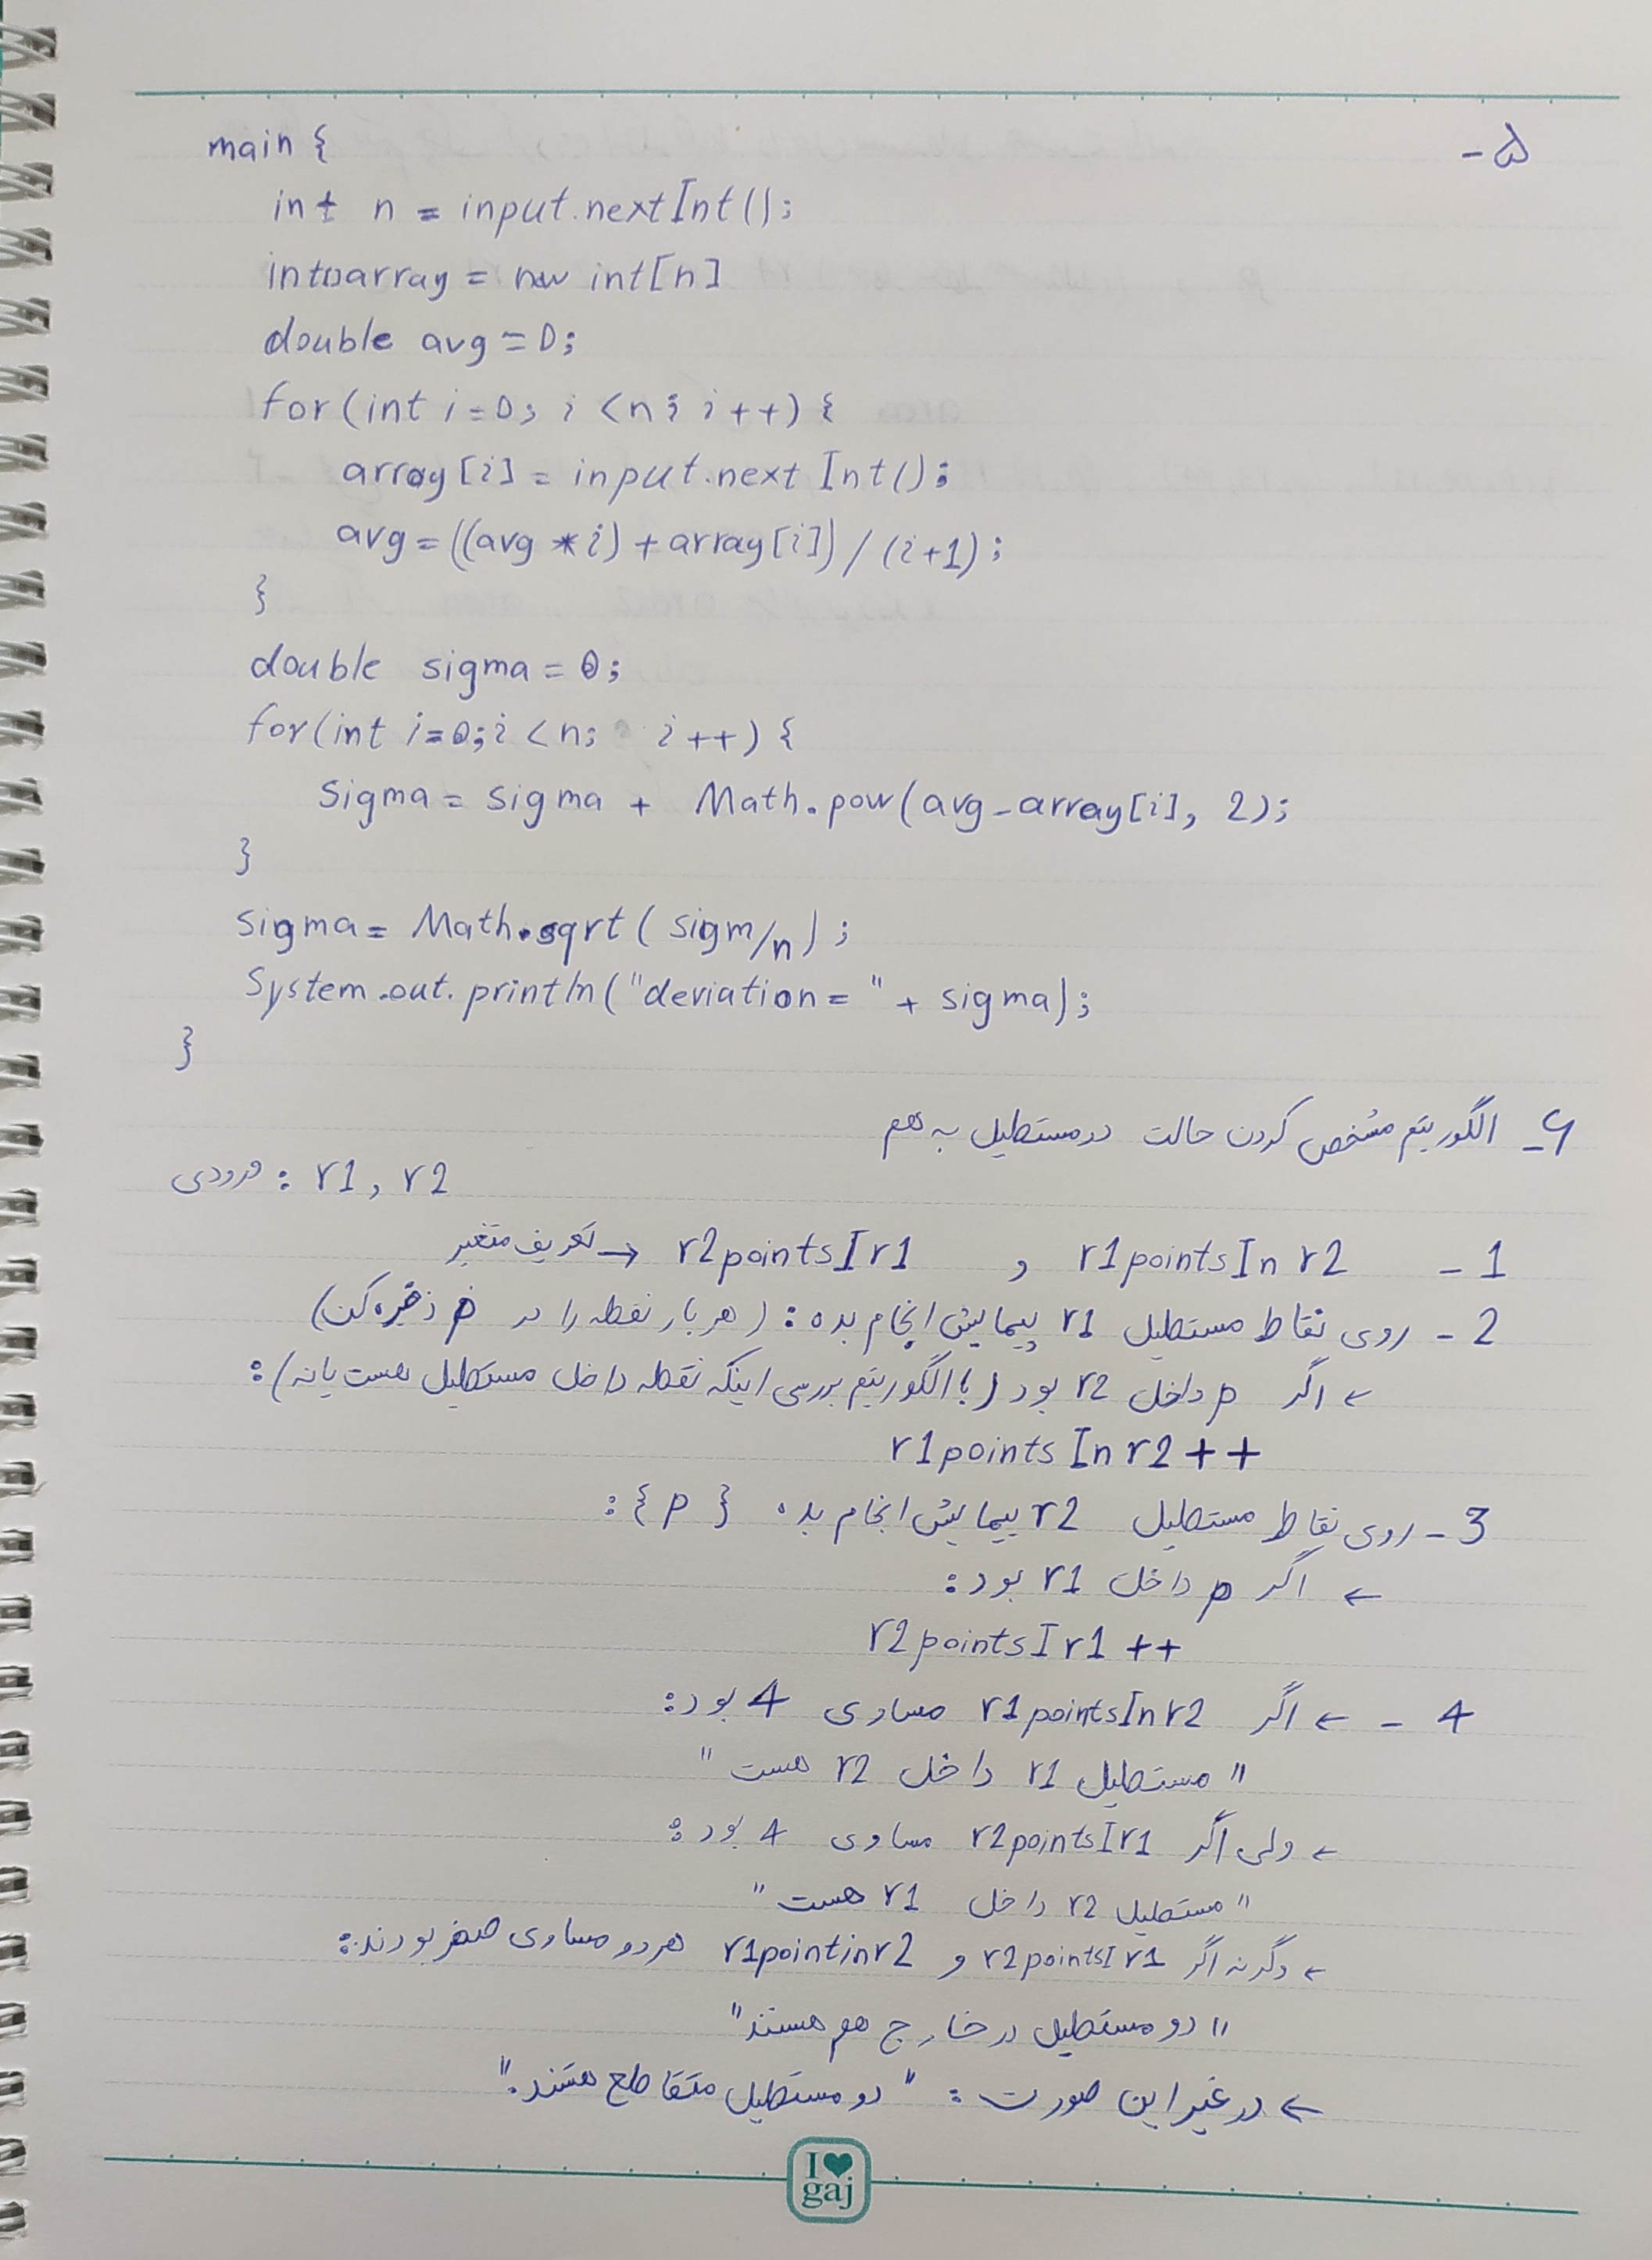 ۵-
main {
int n = input.nextInt();
int[]array = new int[n]
double avg = 0;
for(int i=0; i <n; i++) {
array[i] = input.nextInt();
avg = ((avg * i) + array[i]) / (i+1);
}
double sigma = 0;
for(int i=0; i <n; i++) {
Sigma = sigma + Math.pow(avg-array[i], 2);
}
sigma = Math.sqrt( sigm/n) ;
System.out.println("deviation= " + sigma);
}
۶- الگوریتم مشخص کردن حالت دو مستطیل به هم
ورودی : r1, r2
1 - r1pointsInr2 , r2pointsIr1 → تعریف متغیر
2 - روی نقاط مستطیل r1 پیمایش انجام بده : (هر بار نقطه را در p ذخیره کن)
← اگر p داخل r2 بود (با الگوریتم بررسی اینکه نقطه داخل مستطیل هست یا نه) :
r1pointsInr2++
3 - روی نقاط مستطیل r2 پیمایش انجام بده {p} :
← اگر p داخل r1 بود :
r2pointsIr1++
4 - ← اگر r1pointsInr2 مساوی 4 بود :
"مستطیل r1 داخل r2 هست"
← ولی اگر r2pointsIr1 مساوی 4 بود :
"مستطیل r2 داخل r1 هست"
← وگرنه اگر r2pointsIr1 و r1pointinr2 هردو مساوی صفر بودند :
"دو مستطیل در خارج هم هستند"
← در غیر این صورت : "دو مستطیل متقاطع هستند."
I ♥
gaj